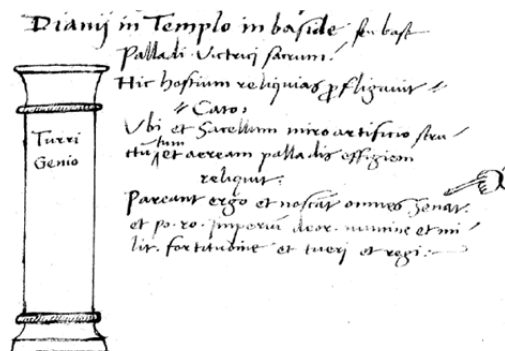 Dianij in Templo in baside seu base
Palladi Victrici sacrum.
Hic hostium reliquias profligavit
Cato.
Ubi et Sacellum miro artificio stru-
ctu tum et aeream palladis effigiem
reliquit.
Pareant ergo et noscãt omnes Senat.
et po. ro. imperiũ deor. numine et mi
lit. fortitudine et tueri et regi.
Turri
Genio